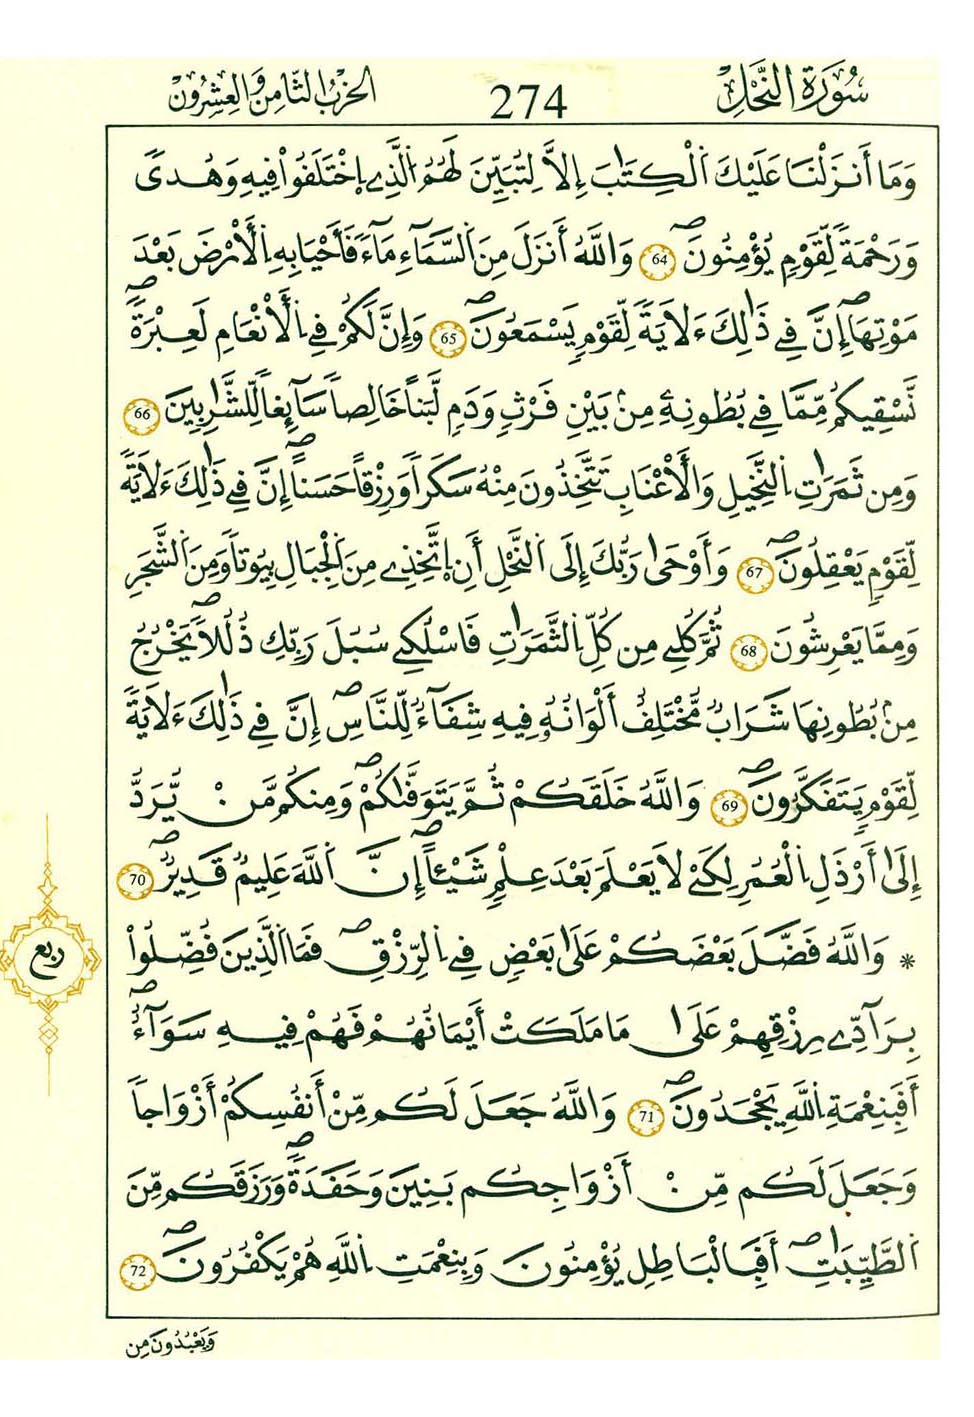 سُورَةُ النَّحْلِ 274 الحِزْبُ الثَّامِنُ وَالعِشْرُونَ
وَمَا أَنزَلْنَا عَلَيْكَ اَلْكِتَٰبَ إِلاَّ لِتُبَيِّنَ لَهُمُ اَلَّذِے اِخْتَلَفُواْ فِيهِ وَهُدىً
وَرَحْمَةً لِّقَوْمٍ يُؤْمِنُونَۖ 64 وَاللَّهُ أَنزَلَ مِنَ اَلسَّمَآءِ مَآءً فَأَحْيَا بِهِ اِلْأَرْضَ بَعْدَ
مَوْتِهَاۖ إِنَّ فِے ذَٰلِكَ ءَلاَيَةً لِّقَوْمٍ يَسْمَعُونَۖ 65 وَإِنَّ لَكُمْ فِے اِلْأَنْعَٰمِ لَعِبْرَةًۖ
نَّسْقِيكُم مِّمَّا فِے بُطُونِهِۦ مِنۢ بَيْنِ فَرْثٍ وَدَمٍ لَّبَناً خَالِصاً سَآئِغاً لِّلشَّٰرِبِينَ 66
وَمِن ثَمَرَٰتِ اِلنَّخِيلِ وَالْأَعْنَٰبِ تَتَّخِذُونَ مِنْهُ سَكَراً وَرِزْقاً حَسَناًۖ إِنَّ فِے ذَٰلِكَ ءَلاَيَةً
لِّقَوْمٍ يَعْقِلُونَۖ 67 وَأَوْحَىٰ رَبُّكَ إِلَى اَلنَّحْلِ أَنِ اِتَّخِذِے مِنَ اَلْجِبَالِ بِيُوتاً وَمِنَ اَلشَّجَرِ
وَمِمَّا يَعْرِشُونَ 68 ثُمَّ كُلِے مِن كُلِّ اِلثَّمَرَٰتِ فَاسْلُكِے سُبُلَ رَبِّكِ ذُلُلاًۖ يَخْرُجُ
مِنۢ بُطُونِهَا شَرَابٌ مُّخْتَلِفٌ أَلْوَانُهُۥ فِيهِ شِفَآءٌ لِّلنَّاسِۖ إِنَّ فِے ذَٰلِكَ ءَلاَيَةً
لِّقَوْمٍ يَتَفَكَّرُونَۖ 69 وَاللَّهُ خَلَقَكُمْ ثُمَّ يَتَوَفَّىٰكُمْۖ وَمِنكُم مَّنْ يُّرَدُّ
إِلَىٰ أَرْذَلِ اِلْعُمُرِ لِكَےْ لاَ يَعْلَمَ بَعْدَ عِلْمٍ شَيْئاًۖ إِنَّ اَللَّهَ عَلِيمٌ قَدِيرٌۖ 70
* وَاللَّهُ فَضَّلَ بَعْضَكُمْ عَلَىٰ بَعْضٍ فِے اِلرِّزْقِۖ فَمَا اَلَّذِينَ فُضِّلُواْ
بِرَآدِّے رِزْقِهِمْ عَلَىٰ مَا مَلَكَتْ أَيْمَانُهُمْ فَهُمْ فِيهِ سَوَآءٌۖ
أَفَبِنِعْمَةِ اِللَّهِ يَجْحَدُونَۖ 71 وَاللَّهُ جَعَلَ لَكُم مِّنْ أَنفُسِكُمْ أَزْوَاجاً
وَجَعَلَ لَكُم مِّنْ أَزْوَاجِكُم بَنِينَ وَحَفَدَةًۖ وَرَزَقَكُم مِّنَ
اَلطَّيِّبَٰتِۖ أَفَبِالْبَاطِلِ يُؤْمِنُونَ وَبِنِعْمَتِ اِللَّهِ هُمْ يَكْفُرُونَۖ 72
ربع
وَيَعْبُدُونَ مِن